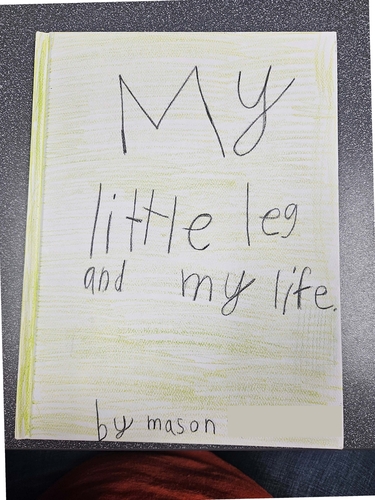 My
little leg
and my life.
by mason